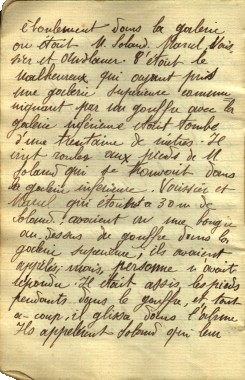 éboulement dans la galerie
ou était M. Solard. Marcel, Vois
sier et
malheureux qui ayant pris
une galerie supérieure commu
niquant par un gouffre avec la
galerie inférieure était tombé
d'une trentaine de mètres. Il
vint rouler aux pieds de M
Solard qui se trouvait dans
la galerie inférieure. Voissier et
Marcel qui étaient à 30 m de
Solard avaient vu une bougie
au-dessus du gouffre dans la
galerie supérieure, ils avaient
appelés mais, personne n'avait
répondu. Il était assis, les pieds
pendants dans le gouffre, et tout
à-coup, il glissa dans l'abîme
Ils appelèrent Solard qui leur